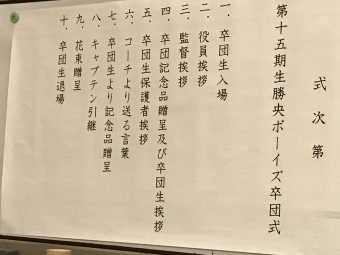 式次第
第十五期生勝央ボーイズ卒団式
一．卒団生入場
二．役員挨拶
三．監督挨拶
四．卒団記念品贈呈及び卒団生挨拶
五．卒団生保護者挨拶
六．コーチより送る言葉
七．卒団生より記念品贈呈
八．キャプテン引継
九．花束贈呈
十．卒団生退場